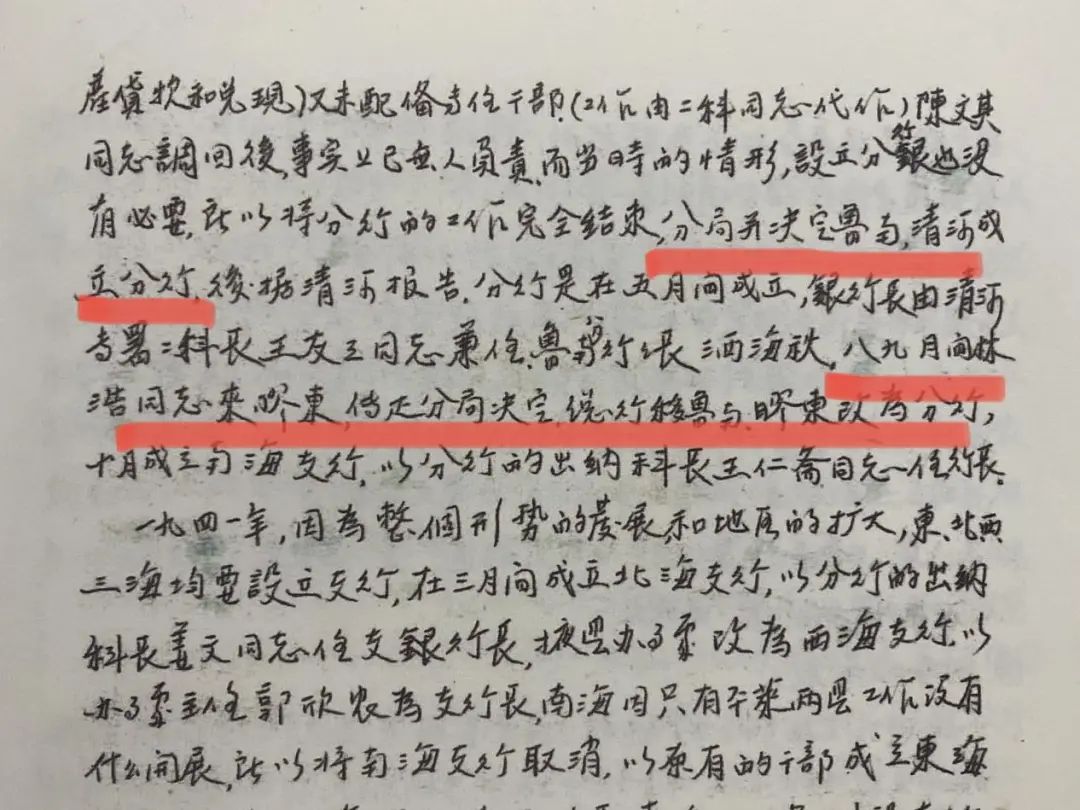 產貨款和兌現)又未配備专任干部.(工作由二科同志代作)陳文其
同志調回後,事实上已無人負責.而当時的情形,設立分行銀也没
有必要,所以将分行的工作完全结束,分局并决定魯南,清河成
立分行,後据清河报告,分行是在五月間成立,銀行長由清河
专署二科長王友三同志兼任.魯南分行長洒海秋,八九月間林
浩同志來膠東,传达分局决定,總行移魯南.膠東改為分行,
十月成立南海支行,以分行的出纳科長王仁斋同志任行長.
一九四一年,因為整個形势的發展,和地區的扩大,東,北西
三海均要設立支行,在三月間成立北海支行,以分行的出纳
科長姜文同志任支銀行長,掖县办事處改為西海支行.以
办事處主任郭欣农為支行長,南海因只有平莱两县工作没有
什么開展,所以将南海支行取消,以原有的干部成立東海